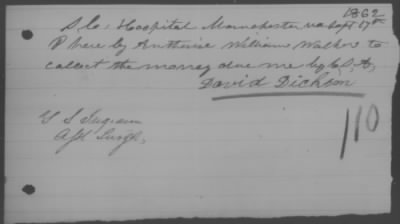 1862
S. C. Hospital Manchester va Sept 17th
I here by Authorise William Walker to
collect the money due me by C. S. A,
David Dickson
110
Asst Surgn,